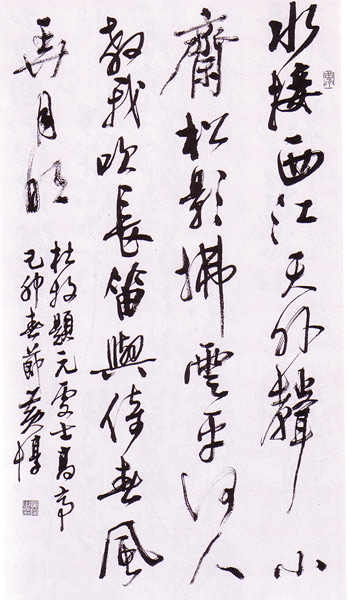 水接西江天外聲小
齋松影拂雲平何人
教我吹長笛與倚春風
弄月明
杜牧題元處士高亭
己卯春節黃惇